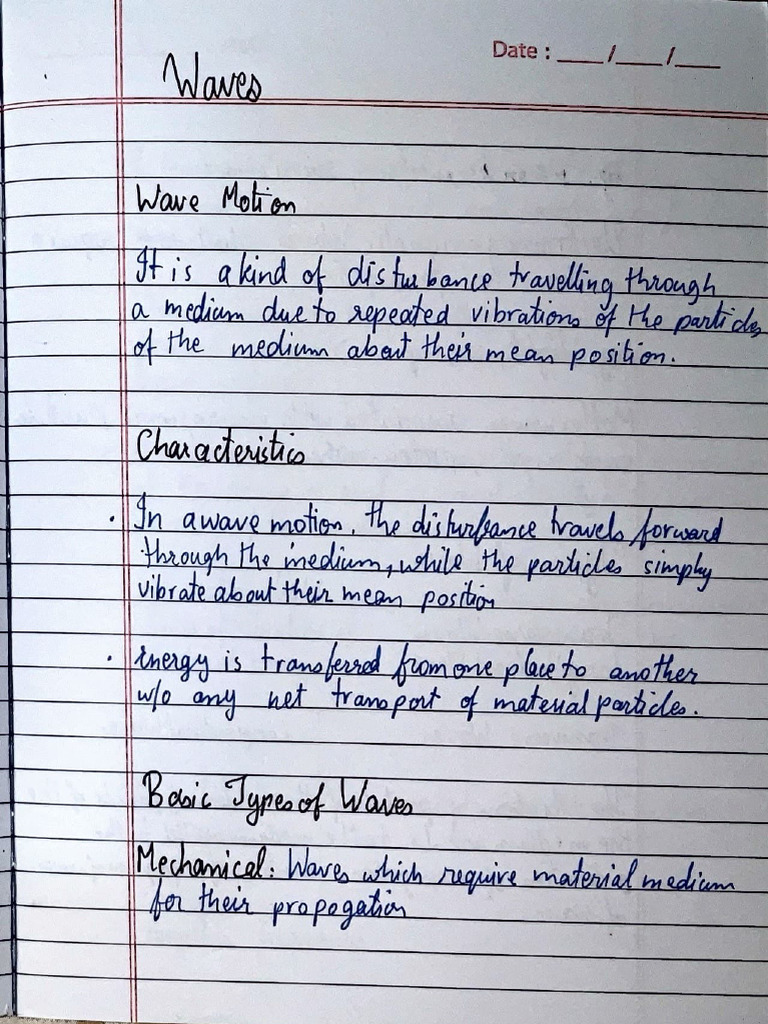 Date : ___/___/___
Waves
Wave Motion
It is a kind of disturbance travelling through
a medium due to repeated vibrations of the particles
of the medium about their mean position.
Characteristics
. In a wave motion, the disturbance travels forward
through the medium, while the particles simply
vibrate about their mean position
. Energy is transferred from one place to another
w/o any net transport of material particles.
Basic Types of Waves
Mechanical: Waves which require material medium
for their propogation